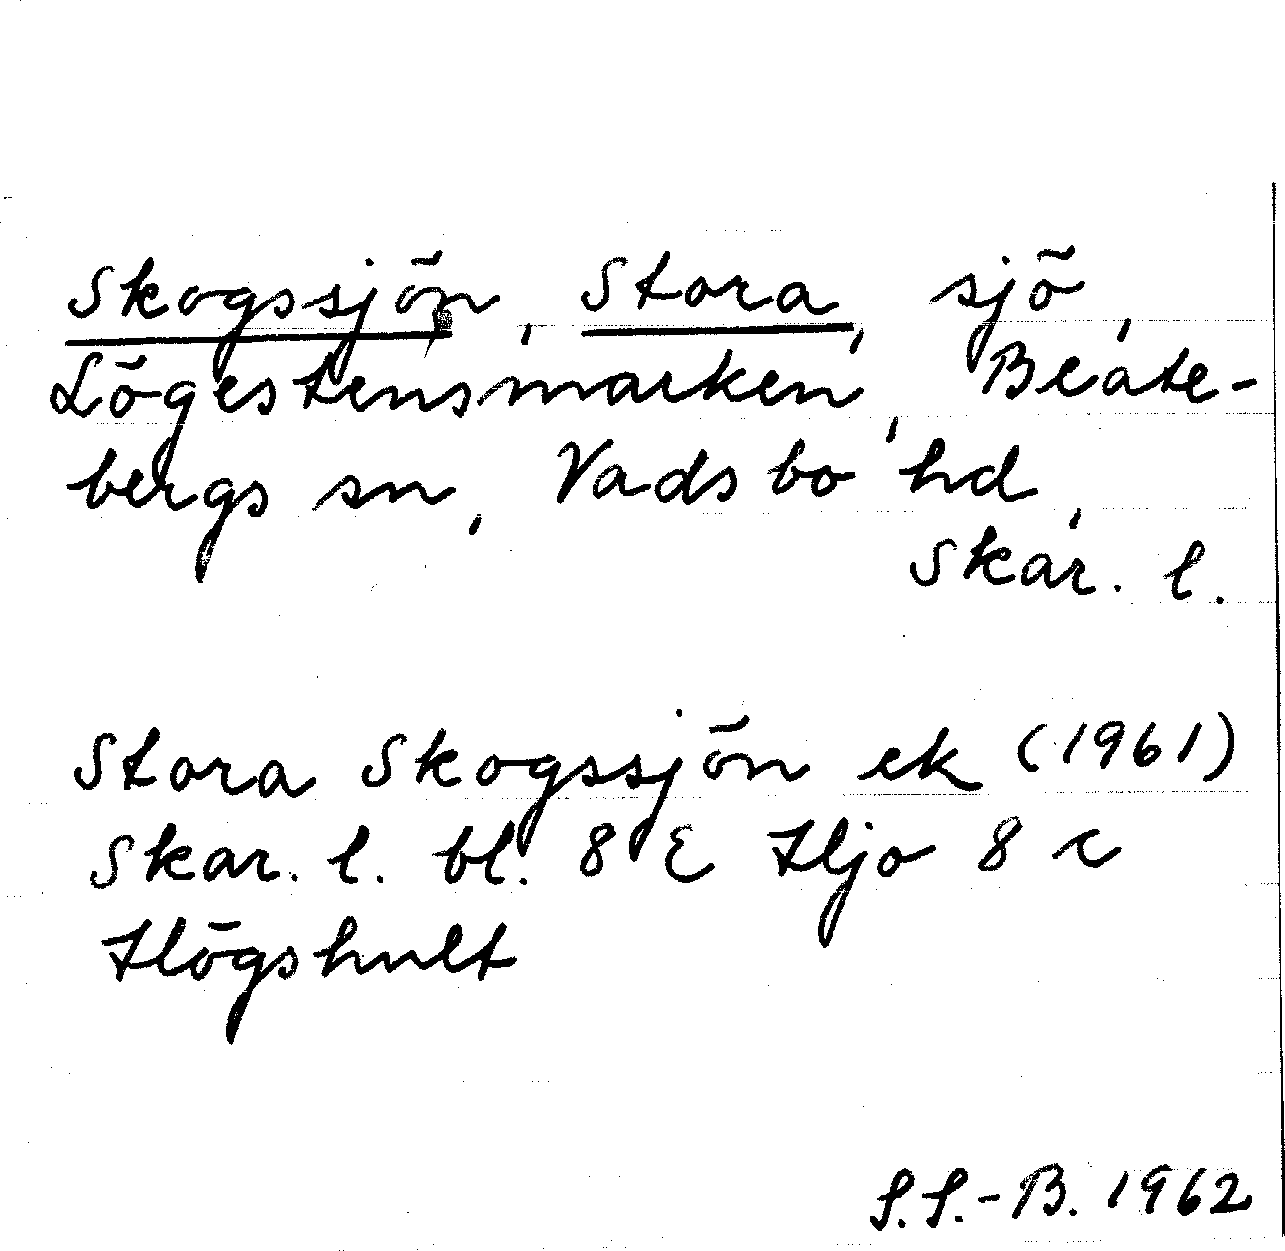 Skogssjön, Stora, sjö,
Lögestensmarken, Beate-
bergs sn, Vadsbo hd,
Skar. l.
Stora Skogssjön ek (1961)
Skar. l. bl. 8 E Hjo 8 c
Högshult
S.S.-B. 1962